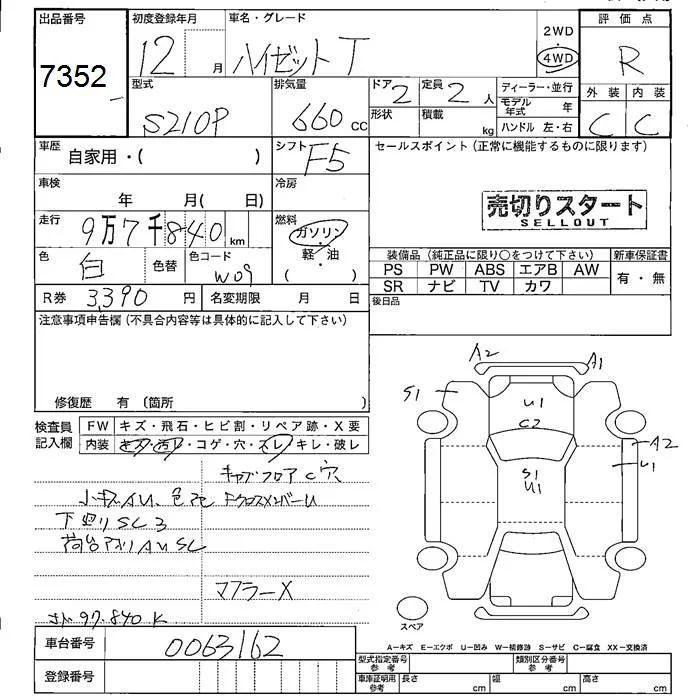 出品番号
7352
初度登録年月
12 月
車名・グレード
ハイゼットT
2WD
4WD
評価点
R
型式
S210P
排気量
660 cc
ドア
2
定員
2 人
形状
積載
kg
ディーラー・並行
モデル年式 年
ハンドル 左・右
外装
内装
C
C
車歴
自家用・( )
シフト
F5
セールスポイント(正常に機能するものに限ります)
車検
年 月( 日)
冷房
売切りスタート
SELLOUT
走行
9万7千840 km
燃料
ガソリン
軽・油
( )
色
白
色替
色コード
W09
装備品(純正品に限り〇をつけて下さい)
新車保証書
PS PW ABS エアB AW
SR ナビ TV カワ
有・無
R券 3,390 円
名変期限 月 日
後日品
注意事項申告欄(不具合内容等は具体的に記入して下さい)
修復歴 有(箇所 )
検査員記入欄
FW キズ・飛石・ヒビ割・リペア跡・X要
内装 キズ・汚れ・コゲ・穴・スレ・キレ・破レ
キャブフロアC穴
小キズAU、色アセ FクロスメンバーU
下廻りSC3
荷台アオリAUSC
マフラーX
97.840K
A2
A1
S1
U1
C2
S1
U1
A2
U1
スペア
A-キズ E-エクボ U-凹み W-補修跡 S-サビ C-腐食 XX-交換済
車台番号
0063162
登録番号
型式指定番号 参考
類別区分番号 参考
車庫証明用 参考
長さ cm
幅 cm
高さ cm